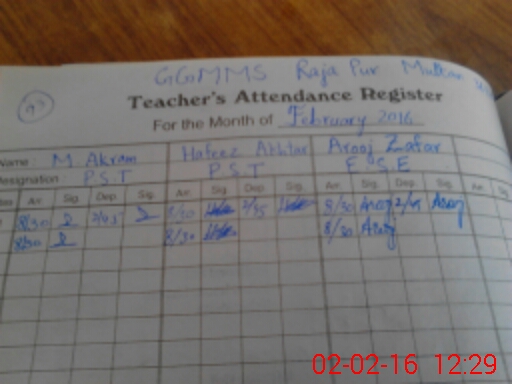 GGMMS Raja Pur Multan
Teacher's Attendance Register
For the Month of February 2016
Name : M Akram Hafeez Akhtar Arooj Zafar
Designation : P.S.T P.S.T E.S.E
Arr. Sig. Dep. Sig. Arr. Sig. Dep. Sig. Arr. Sig. Dep. Sig. Arr. Sig.
8/30 8/30 2/45 8/30 Arooj Arooj
8/30 8/30 8/30 Arooj
02-02-16 12:29